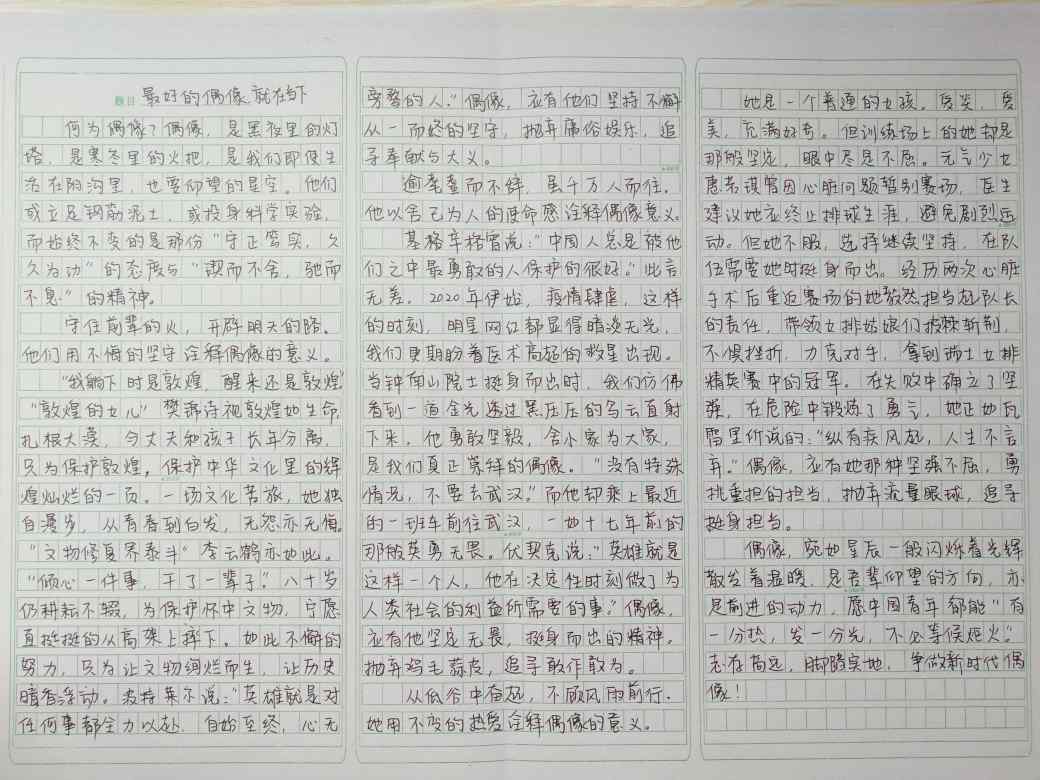 题目 最好的偶像就在当下
何为偶像？偶像，是黑夜里的灯
塔，是寒冬里的火把，是我们即使生
活在阴沟里，也要仰望的星空。他们
或立足钢筋泥土，或投身科学实验，
而始终不变的是那份“守正笃实，久
久为功”的态度与“锲而不舍，驰而
不息”的精神。
守住前辈的火，开辟明天的路。
他们用不悔的坚守诠释偶像的意义。
“我躺下时是敦煌，醒来还是敦煌”
“敦煌的女儿”樊锦诗视敦煌如生命，
扎根大漠，令丈夫和孩子长年分离，
只为保护敦煌，保护中华文化里的辉
煌灿烂的一页。一场文化苦旅，她独
自漫步，从青春到白发，无怨亦无悔。
“文物修复界泰斗”李云鹤亦如此。
“倾心一件事，干了一辈子。”八十岁
仍耕耘不辍，为保护怀中文物，宁愿
直挺挺的从高架上摔下。如此不懈的
努力，只为让文物绚烂而生，让历史
暗香浮动。波特莱尔说：“英雄就是对
任何事都全力以赴，自始至终，心无
旁骛的人。”偶像，应有他们坚持不懈
从一而终的坚守，抛弃庸俗娱乐，追
寻奉献与大义。
逾耄耋而不惮，虽千万人而往。
他以舍己为人的使命感诠释偶像意义。
基格辛格曾说：“中国人总是被他
们之中最勇敢的人保护的很好。”此言
无差。2020年伊始，疫情肆虐，这样
的时刻，明星网红都显得暗淡无光，
我们更期盼着医术高超的救星出现。
当钟南山院士挺身而出时，我们仿佛
看到一道金光透过黑压压的乌云直射
下来，他勇敢坚毅，舍小家为大家，
是我们真正崇拜的偶像。“没有特殊
情况，不要去武汉。”而他却乘上最近
的一班车前往武汉，一如十七年前的
那般英勇无畏。伏契克说：“英雄就是
这样一个人，他在决定性时刻做了为
人类社会的利益所需要的事。”偶像，
应有他坚定无畏，挺身而出的精神，
抛弃鸡毛蒜皮，追寻敢作敢为。
从低谷中奋起，不顾风雨前行。
她用不变的热爱诠释偶像的意义。
她是一个普通的女孩。爱笑，爱
美，充满好奇。但训练场上的她却是
那般坚定，眼中尽是不屈。元气少女
惠若琪曾因心脏问题暂别赛场，医生
建议她应终止排球生涯，避免剧烈运
动。但她不服，选择继续坚持，在队
伍需要她时挺身而出。经历两次心脏
手术后重返赛场的她毅然担当起队长
的责任，带领女排姑娘们披荆斩棘，
不惧挫折，力克对手，拿到瑞士女排
精英赛中的冠军。在失败中确立了坚
强，在危险中锻炼了勇气，她正如瓦
雷里所说的：“纵有疾风起，人生不言
弃。”偶像，应有她那种坚强不屈，勇
挑重担的担当，抛弃流量眼球，追寻
挺身担当。
偶像，宛如星辰一般闪烁着光辉
散发着温暖，是吾辈仰望的方向，亦
是前进的动力，愿中国青年都能“有
一分热，发一分光，不必等候炬火”。
志在高远，脚踏实地，争做新时代偶
像！